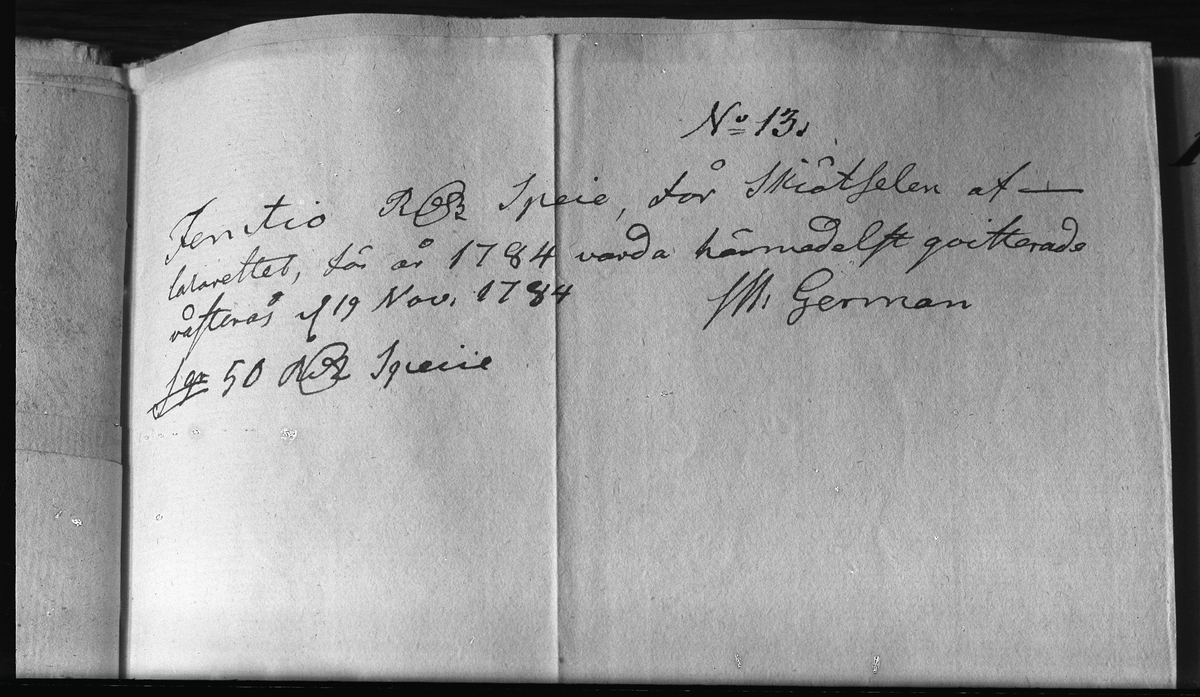 No 13.
Femtio Rdr Specie, för Skiötselen af —
lazarettet, för år 1784 varda härmedelst qvitterade
västerås d 19 Nov. 1784
German
50 Rdr Specie